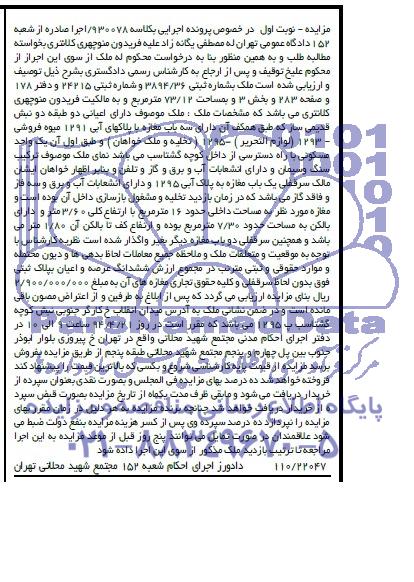 مزایده - نوبت اول در خصوص پرونده اجرایی بکلاسه 930078/اجرا صادره از شعبه
152 دادگاه عمومی تهران له مصطفی یگانه زاد علیه فریدون منوچهری کلانتری بخواسته
مطالبه طلب و به همین منظور بنا به درخواست محکوم له ملک از سوی این اجرا از
محکوم علیه توقیف و پس از ارجاع به کارشناس رسمی دادگستری بشرح ذیل توصیف
و ارزیابی شده است ملک بشماره ثبتی 3894/36 و شماره ثبتی 24215 و دفتر 178
و صفحه 283 و بخش 3 و بمساحت 73/12 مترمربع و به مالکیت فریدون منوچهری
کلانتری می باشد که مشخصات ملک : ملک موصوف دارای اعیانی دو طبقه دو نبش
قدیمی ساز که طبق همکف آن دارای سه باب مغازه با پلاکهای آبی 1291 میوه فروشی
- 1293 (لوازم التحریر) -1295 (تخلیه و ملک خواهان) و طبق اول آن یک واحد
مسکونی با راه دسترسی از داخل کوچه گشتاسب می باشد نمای ملک موصوف ترکیب
سنگ وسیمان و دارای انشعابات آب و برق و گاز و تلفن و بنابر اظهار خواهان ایشان
مالک سرقفلی یک باب مغازه به پلاک آبی 1295 و دارای انشعابات آب و برق و سه فاز
و فاقد گاز می باشد که در زمان بازدید تخلیه و مشغول بازسازی داخل آن بوده است و
مغازه مورد نظر به مساحت داخلی حدود 16 مترمربع با ارتفاع کلی 3/60 متر و دارای
بالکن به مساحت حدود 7/30 مترمربع بوده و ارتفاع کف تا بالکن آن 1/80 متر می
باشد و همچنین سرقفلی دو باب مغازه دیگر بغیر واگذار شده است نظریه کارشناس با
توجه به موقعیت و متعلقات ملک و ملاحظه جمیع معاملات لحاظ بدهی ها و دیون محتمله
و موارد حقوقی و ثبتی مترتب در مجموع ارزش ششدانگ عرصه و اعیان پلاک ثبتی
فوق بدون لحاظ سرقفلی و کلیه حقوق تجاری مغازه های آن به مبلغ 2/900/000/000
ریال بنای مزایده ارزیابی می گردد که پس از ابلاغ به طرفین و از اعتراض مصون باقی
مانده است و در ضمن نشانی ملک به آدرس میدان انقلاب خ کارگر جنوبی نبش کوچه
گشتاسب پ 1295 می باشد که مقرر است در روز 94/4/21 ساعت 9 الی 10 در
دفتر اجرای احکام مدنی مجتمع شهید محلاتی واقع در تهران خ پیروزی بلوار ابوذر
جنوب بین پل چهارم و پنجم مجتمع شهید محلاتی طبقه پنجم از طریق مزایده بفروش
برسد مزایده از قیمت پایه کارشناسی شروع و بکسی که بالاترین قیمت را پیشنهاد کند
فروخته خواهد شد ده درصد بهای مزایده فی المجلس و بصورت نقدی بعنوان سپرده از
خریدار دریافت می شود و مابقی ظرف مدت یکماه از تاریخ مزایده بصورت قبض سپرد
ه از خریدار دریافت خواهد شد چنانچه برنده مزایده به هر دلیل در زمان مقرر بهای
مزایده را نپردازد ده درصد سپرده وی پس از کسر هزینه مزایده بنفع دولت ضبط می
شود علاقمندان در صورت تمایل می توانند پنج روز قبل از موعد مزایده به این اجرا
مراجعه تا ترتیب بازدید ملک مذکور از سوی این اجرا داده شود
110/22047 دادورز اجرای احکام شعبه 152 مجتمع شهید محلاتی تهران